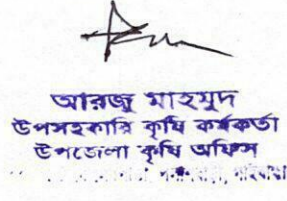 আরজু মাহমুদ
উপসহকারি কৃষি কর্মকর্তা
উপজেলা কৃষি অফিস
গাইবান্ধা